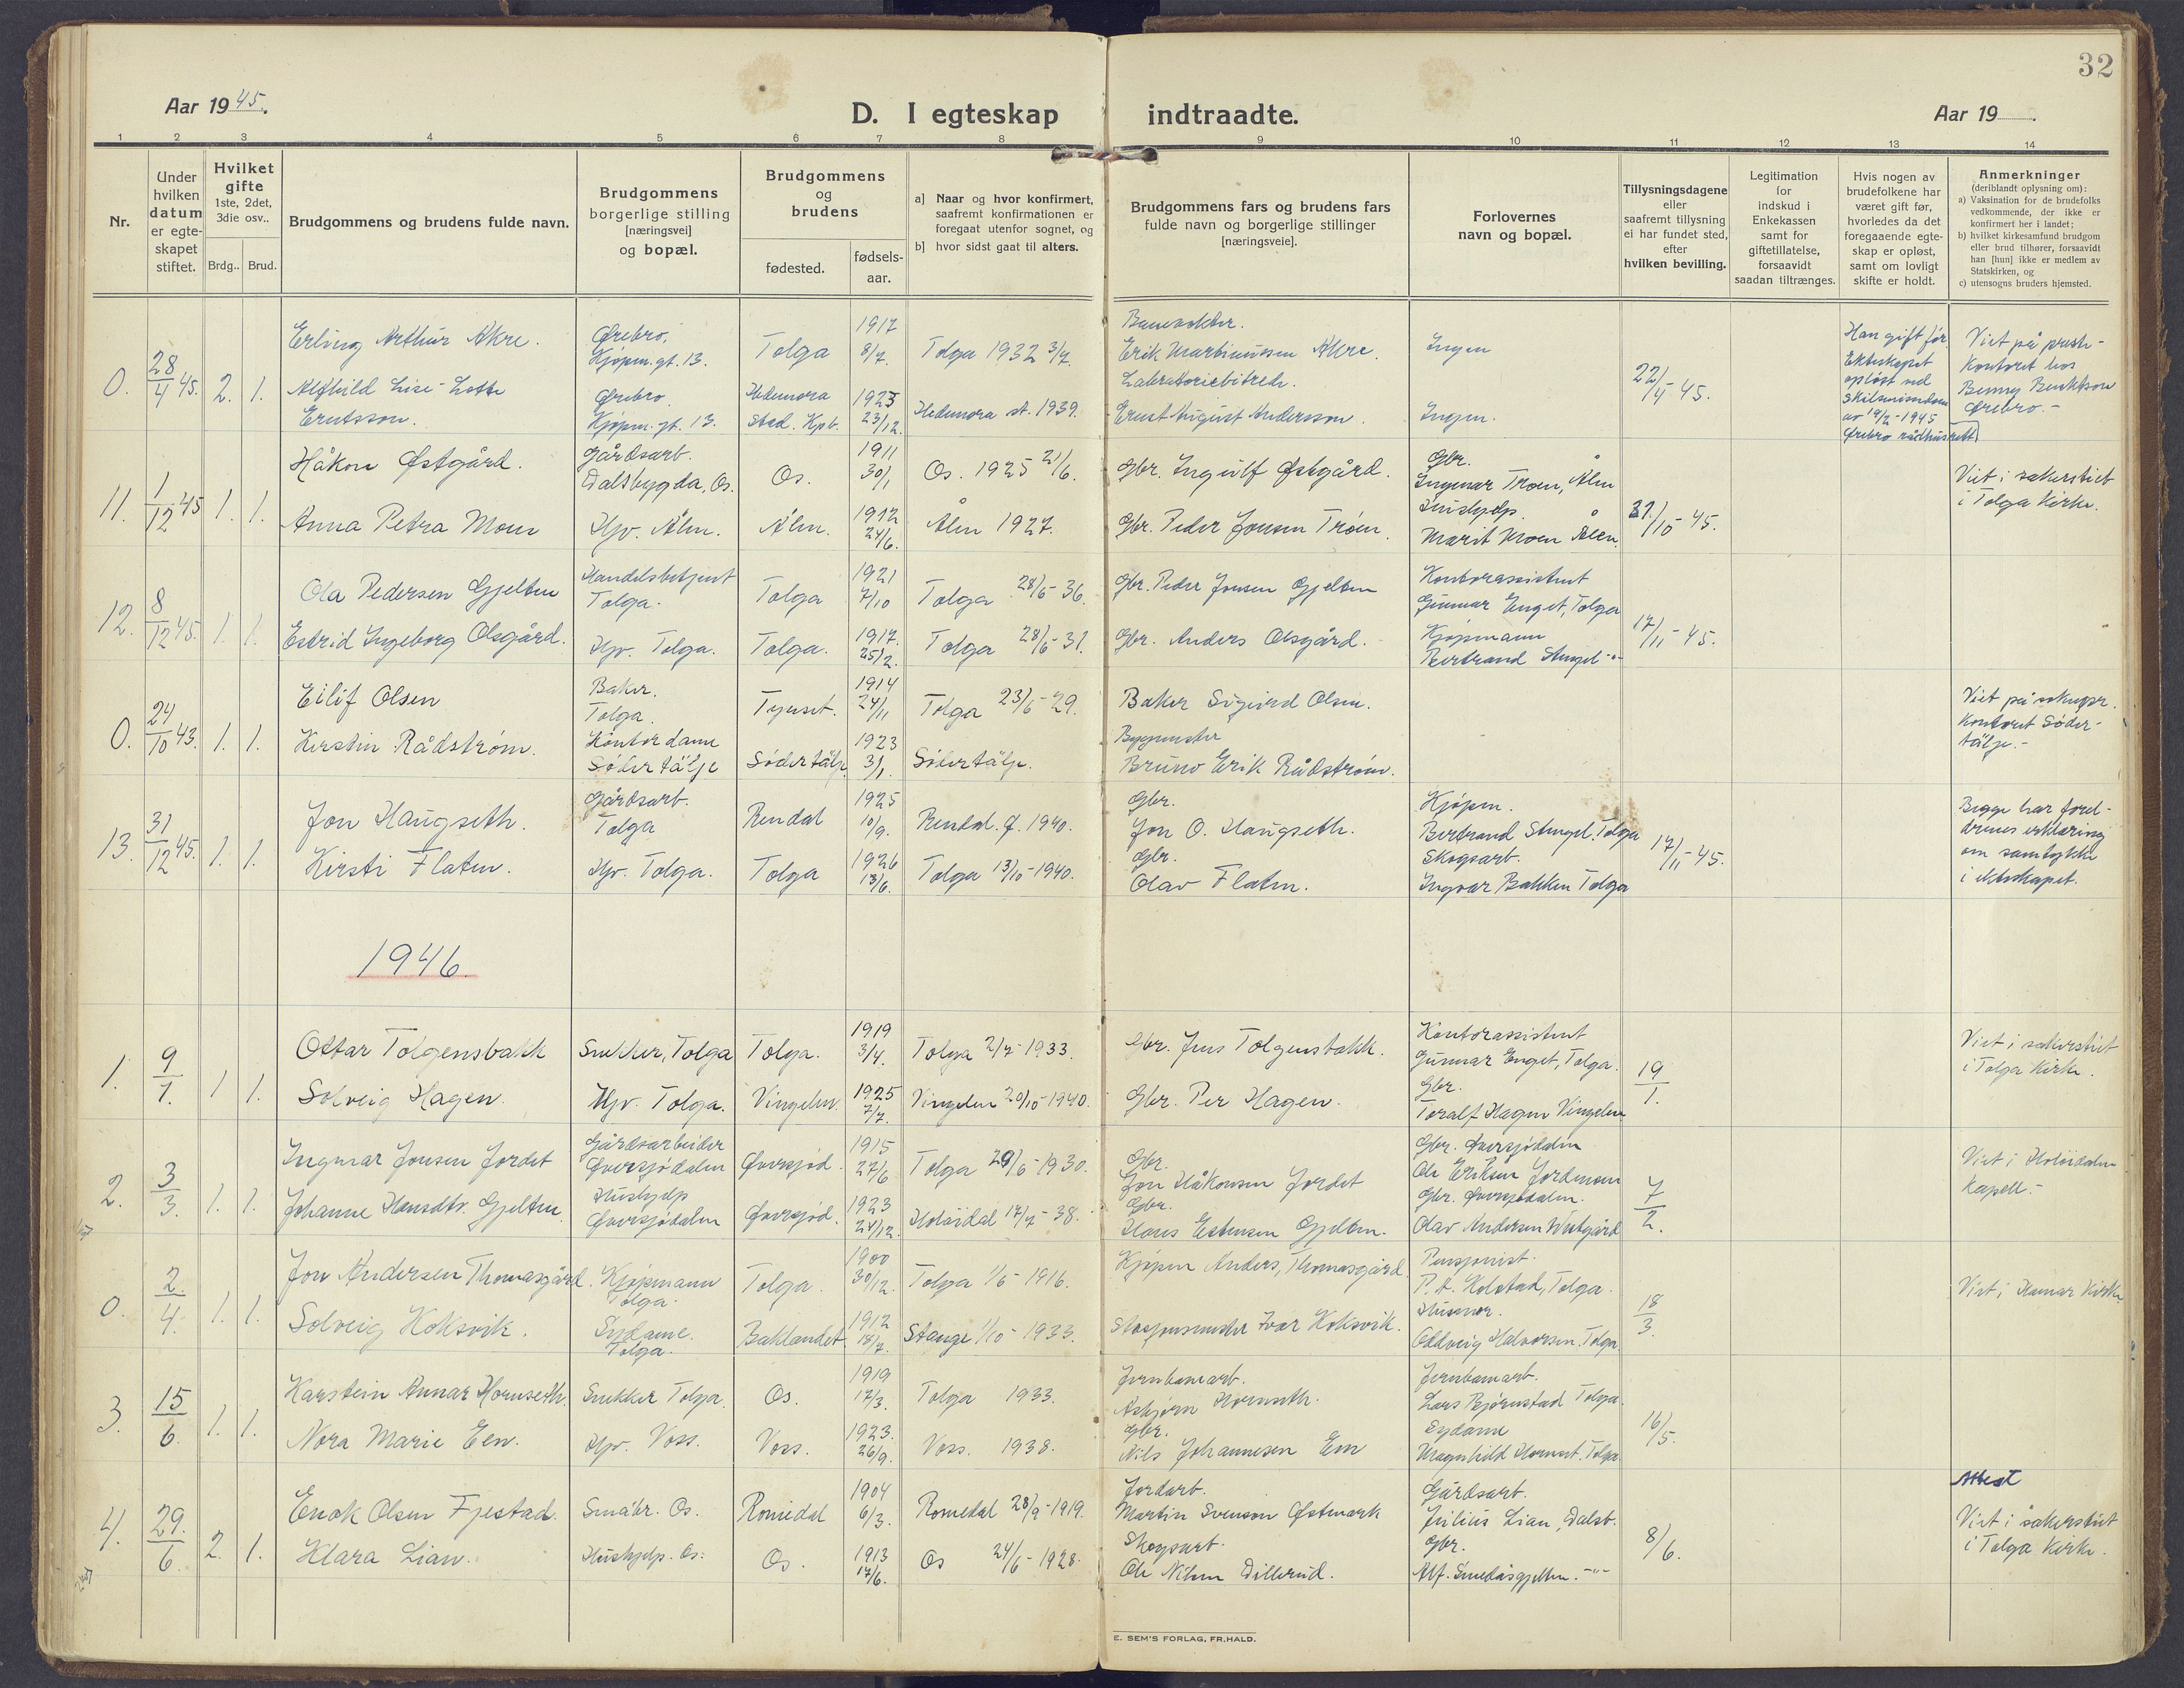 32
Aar 1945.
D. I egteskap indtraadte.
Aar 19
1 2 3 4 5 6 7 8 9 10 11 12 13 14
Nr.
Under hvilken datum er egte-skapet stiftet.
Hvilket gifte 1ste, 2det, 3die osv..
Brdg.. Brud.
Brudgommens og brudens fulde navn.
Brudgommens borgerlige stilling [næringsvei] og bopæl.
Brudgommens og brudens
fødested.
fødsels-aar.
a) Naar og hvor konfirmert, saafremt konfirmationen er foregaat utenfor sognet, og
b) hvor sidst gaat til alters.
Brudgommens fars og brudens fars fulde navn og borgerlige stillinger [næringsveie].
Forlovernes navn og bopæl.
Tillysningsdagene eller saafremt tillysning ei har fundet sted, efter hvilken bevilling.
Legitimation for indskud i Enkekassen samt for giftetillatelse, forsaavidt saadan tiltrænges.
Hvis nogen av brudefolkene har været gift før, hvorledes da det foregaaende egte-skap er opløst, samt om lovligt skifte er holdt.
Anmerkninger (deriblandt oplysning om):
a) Vaksination for de brudefolks vedkommende, der ikke er konfirmert her i landet;
b) hvilket kirkesamfund brudgom eller brud tilhører, forsaavidt han [hun] ikke er medlem av Statskirken, og
c) utensogns bruders hjemsted.
0. 28/4 45. 2. 1.
Erling Arthur Akre. Ørebro, Kjøpm.gt. 13. Tolga 1917 8/7. Tolga 1932 3/7. Erik Martinussen Akre. Ingen
Alfhild Lise-Lotte Erntsson. Ørebro. Kjøpm.gt. 13. Hedemora stad. Kpb. 1923 23/12. Hedemora st. 1939. Laboratoriebitrede. Ernst August Andersson. Ingen.
22/4-45.
Han gift før. Ekteskapet opløst ved skilsmissedom av 19/2-1945 Ørebro rådhusrett
Viet på preste-kontoret hos Benny Benktson Ørebro.-
11. 1/12 45 1. 1.
Håkon Østgård. Gårdsarb. Dalsbygda, Os. Os. 1911 30/1 Os. 1925 21/6. Gbr. Ingulf Østgård. Gbr. Ingmar Troen, Ålen
Anna Petra Moen Hjv. Ålen. Ålen. 1912 24/6. Ålen 1927. Gbr. Peder Jonsen Trøen. Hushjelp. Marit Moen Ålen.
/10-45.
Viet i sakerstiet i Tolga Kirke.
12. 8/12 45. 1. 1.
Ola Pedersen Gjelten Handelsbetjent Tolga. Tolga 1921 7/10 Tolga 28/6-36. Gbr. Peder Jonsen Gjelten Kontorassistent Gunnar Enget, Tolga
Estrid Ingeborg Olsgård. Hjv. Tolga. Tolga. 1917. 25/2. Tolga 28/6-31. Gbr. Anders Olsgård. Kjøpmann Bertrand Stengel -"-
17/11-45.
0. 24/10 43. 1. 1.
Eilif Olsen Baker. Tolga. Tynset. 1914 24/11 Tolga 23/6-29. Baker Sigurd Olsen.
Kerstin Rådstrøm. Kontordame Södertälje Södertälje 1923 3/1. Södertälje. Byggmester Bruno Erik Rådstrøm.
Viet på soknepr. kontoret Söder-tälje.-
13. 31/12 45. 1. 1.
Jon Haugseth. Gårdsarb. Tolga Rendal 1925 10/9. Rendal. Ø. 1940. Gbr. Jon O. Haugseth. Kjøpm. Bertrand Stengel. Tolga
Kirsti Flaten. Hjv. Tolga. Tolga 1926 13/6. Tolga 13/10-1940. Gbr. Olav Flaten. Skogsarb. Ingvar Bakken Tolga
17/11-45.
Begge har forel-drenes erklæring om samtykke i ekteskapet.
1946.
1. 9/1. 1 1.
Ottar Tolgensbakk Snekker, Tolga Tolga. 1919 3/4. Tolga 2/7-1933. Gbr. Jens Tolgensbakk. Kontorassistent Gunnar Enget, Tolga.
Solveig Hagen. Hjv. Tolga. Vingelen. 1925 7/7. Vingelen 20/10-1940. Gbr. Per Hagen. Gbr. Toralf Hagen Vingelen
19/1.
Viet i sakerstiet i Tolga Kirke.
2. 3/3. 1. 1.
Ingmar Jonsen Jordet Gårdsarbeider Øversjødalen Øversjød. 1915 27/6 Tolga 29/6-1930. Gbr. Jon Håkonsen Jordet Gbr. Øversjødalen Ole Eriksen Jordmoen
Johanne Hansdtr. Gjelten Hushjelp Øversjødalen Øversjød. 1923 24/12. Holøidal 17/7-38. Gbr. Hans Estensen Gjelten. Gbr. Øversjødalen. Olav Andersen Westgård
7/2.
Viet i Holøidalen Kapell.-
0. 2/4. 1. 1.
Jon Andersen Thomasgård. Kjøpmann Tolga. Tolga. 1900 30/12. Tolga 1/6-1916. Kjøpm Anders, Thomasgård. Pensjonist. P. A. Kolstad, Tolga.
Solveig Koksvik. Sydame. Tolga. Baklandet 1912 18/7. Stange 1/10-1933. Stasjonsmester Ivar Koksvik. Husmor. Oddveig Halvorsen. Tolga.
18/3.
Viet i Hamar Kirke
3. 15/6. 1. 1.
Karstein Annar Hornseth. Snekker Tolga. Os. 1919 17/3. Tolga 1933. Jernbanearb. Asbjørn Hornseth. Jernbanearb. Lars Bjørnstad Tolga.
Nora Marie Een. Hjv. Voss. Voss. 1923. 26/9. Voss. 1938. Gbr. Nils Johannesen Een Sydame Magnhild Hornset. Tolga.
16/5.
4. 29./6. 2. 1.
Enok Olsen Fjestad. Småbr. Os. Romedal 1904 6/3. Romedal 28/9-1919. Jordarb. Martin Svenson Østmark Gårdsarb. Julius Lian, Dalsb.
Klara Lian. Hushjelp. Os. Os. 1913 17/6. Os 24/6-1928. Skogsarb. Ole Nilsen Dillerud. Gbr. Alf. Smedåsgjelten. -"-
8/6.
Attest
Viet i såkerstiet i Tolga Kirke.
E. SEM'S FORLAG, FR.HALD.